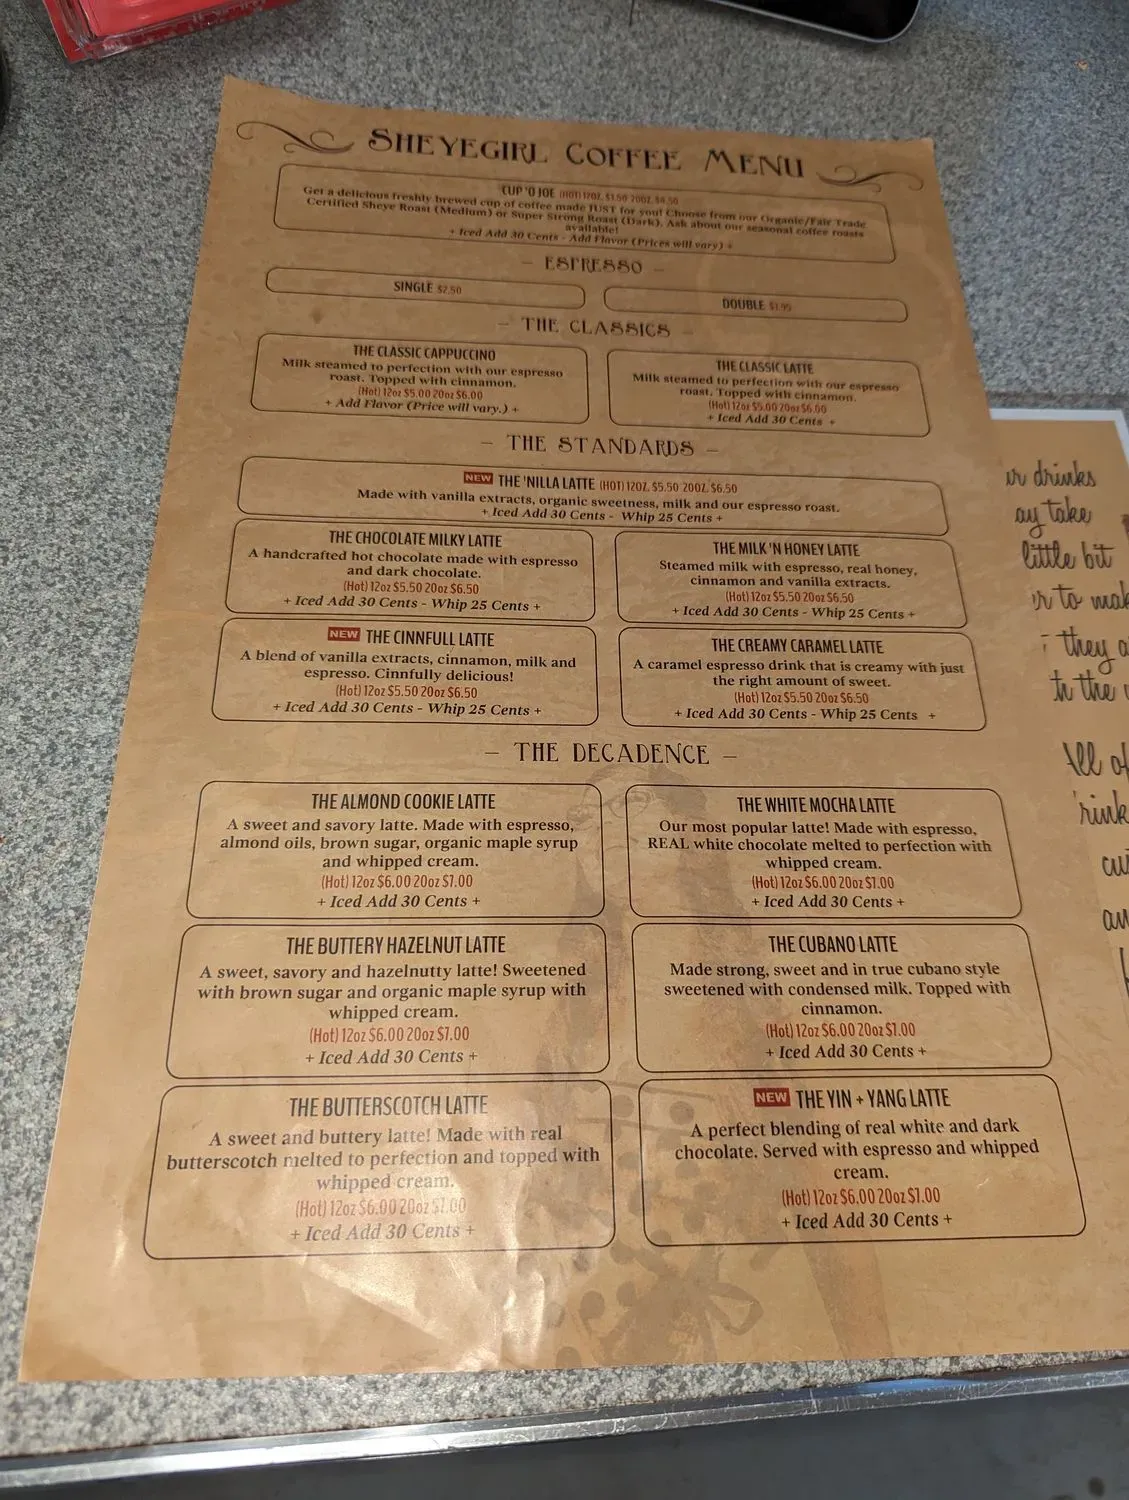 SHEYEGIRL COFFEE MENU
CUP 'O JOE (HOT) 12OZ. $3.50 20OZ. $4.50
Get a delicious freshly brewed cup of coffee made JUST for you! Choose from our Organic/Fair Trade
Certified Sheye Roast (Medium) or Super Strong Roast (Dark). Ask about our seasonal coffee roasts
available!
+ Iced Add 30 Cents - Add Flavor (Prices will vary) +
- ESPRESSO -
SINGLE $2.50
DOUBLE
- THE CLASSICS -
THE CLASSIC CAPPUCCINO
Milk steamed to perfection with our espresso
roast. Topped with cinnamon.
(Hot) 12oz $5.00 20oz $6.00
+ Add Flavor (Price will vary.) +
THE CLASSIC LATTE
Milk steamed to perfection with our espresso
roast. Topped with cinnamon.
(Hot) 12oz $5.00 20oz $6.00
+ Iced Add 30 Cents +
- THE STANDARDS -
NEW THE 'NILLA LATTE (HOT) 12OZ. $5.50 20OZ. $6.50
Made with vanilla extracts, organic sweetness, milk and our espresso roast.
+ Iced Add 30 Cents - Whip 25 Cents +
THE CHOCOLATE MILKY LATTE
A handcrafted hot chocolate made with espresso
and dark chocolate.
(Hot) 12oz $5.50 20oz $6.50
+ Iced Add 30 Cents - Whip 25 Cents +
THE MILK 'N HONEY LATTE
Steamed milk with espresso, real honey,
cinnamon and vanilla extracts.
(Hot) 12oz $5.50 20oz $6.50
+ Iced Add 30 Cents - Whip 25 Cents +
NEW THE CINNFULL LATTE
A blend of vanilla extracts, cinnamon, milk and
espresso. Cinnfully delicious!
(Hot) 12oz $5.50 20oz $6.50
+ Iced Add 30 Cents - Whip 25 Cents +
THE CREAMY CARAMEL LATTE
A caramel espresso drink that is creamy with just
the right amount of sweet.
(Hot) 12oz $5.50 20oz $6.50
+ Iced Add 30 Cents - Whip 25 Cents +
- THE DECADENCE -
THE ALMOND COOKIE LATTE
A sweet and savory latte. Made with espresso,
almond oils, brown sugar, organic maple syrup
and whipped cream.
(Hot) 12oz $6.00 20oz $7.00
+ Iced Add 30 Cents +
THE WHITE MOCHA LATTE
Our most popular latte! Made with espresso,
REAL white chocolate melted to perfection with
whipped cream.
(Hot) 12oz $6.00 20oz $7.00
+ Iced Add 30 Cents +
THE BUTTERY HAZELNUT LATTE
A sweet, savory and hazelnutty latte! Sweetened
with brown sugar and organic maple syrup with
whipped cream.
(Hot) 12oz $6.00 20oz $7.00
+ Iced Add 30 Cents +
THE CUBANO LATTE
Made strong, sweet and in true cubano style
sweetened with condensed milk. Topped with
cinnamon.
(Hot) 12oz $6.00 20oz $7.00
+ Iced Add 30 Cents +
THE BUTTERSCOTCH LATTE
A sweet and buttery latte! Made with real
butterscotch melted to perfection and topped with
whipped cream.
(Hot) 12oz $6.00 20oz $7.00
+ Iced Add 30 Cents +
NEW THE YIN + YANG LATTE
A perfect blending of real white and dark
chocolate. Served with espresso and whipped
cream.
(Hot) 12oz $6.00 20oz $7.00
+ Iced Add 30 Cents +
drinks
take
little bit
to
they
the